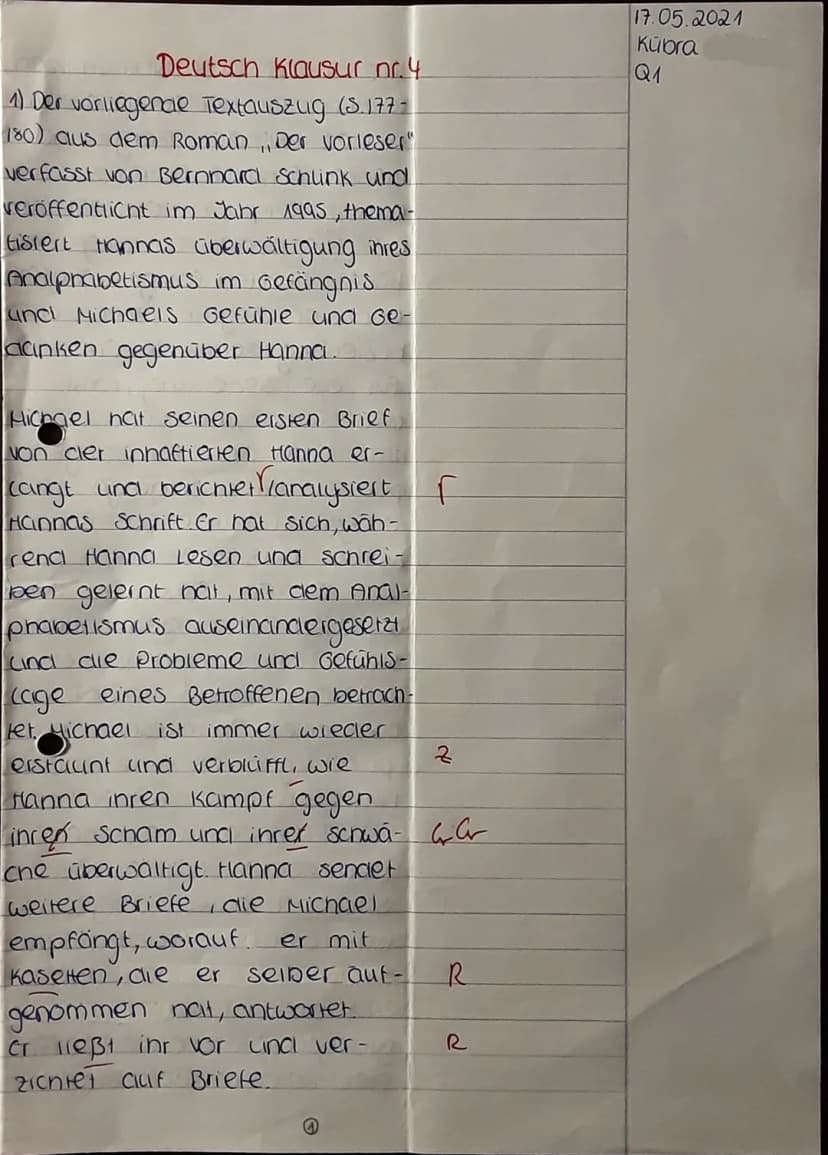 17.05.2021
Kübra
Q1
Deutsch Klausur nr.4
1) Der vorliegende Textauszug (S.177-
180) aus dem Roman „Der Vorleser"
verfasst von Bernhard Schlink und
veröffentlicht im Jahr 1995, thema-
tisiert Hannas Überwältigung ihres
Analphabetismus im Gefängnis
und Michaels Gefühle und Ge-
danken gegenüber Hanna.
Michael hat seinen ersten Brief
von der inhaftierten Hanna er-
langt und berichtet/analysiert Γ
Hannas Schrift. Er hat sich, wäh-
rend Hanna Lesen und schrei-
ben gelernt hat, mit dem Anal-
phabetismus auseinandergesetzt
und die Probleme und Gefühls-
lage eines Betroffenen betrach-
tet. Michael ist immer wieder
erstaunt und verblüfft, wie Z
Hanna ihren Kampf gegen
ihren Scham und ihrer Schwä- Gr Gr
che überwältigt. Hanna sendet
weitere Briefe, die Michael
empfängt, worauf er mit
Kasetten, die er selber auf- R
genommen hat, antwortet.
Er ließt ihr vor und ver- R
zichtet auf Briefe.
1